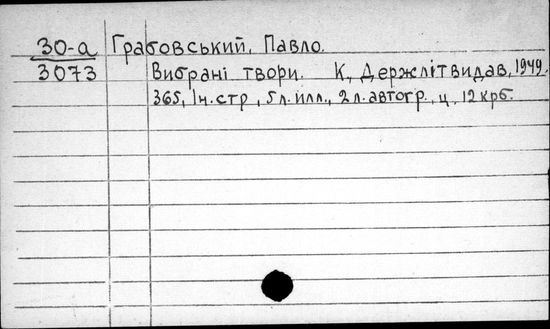 30-а Грабовський, Павло.
3073 Вибрані твори. К., Держлітвидав, 1949.
365, 1н.стр., 5 л. илл., 2 л. автогр., ц. 12 крб.